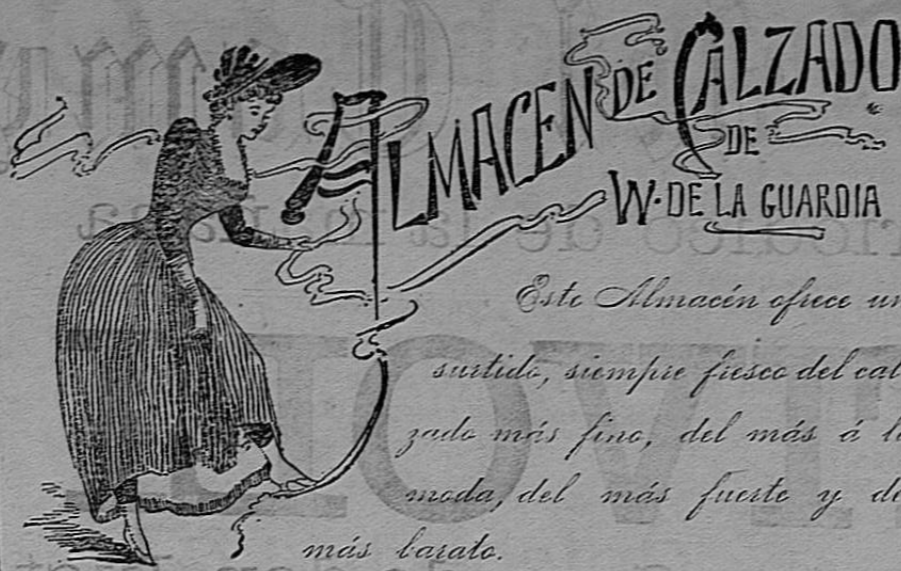 ALMACEN DE CALZADO
DE
W. DE LA GUARDIA
Este Almacén ofrece un
surtido, siempre fresco del cal
zado más fino, del más á l
moda, del más fuerte y de
más barato.